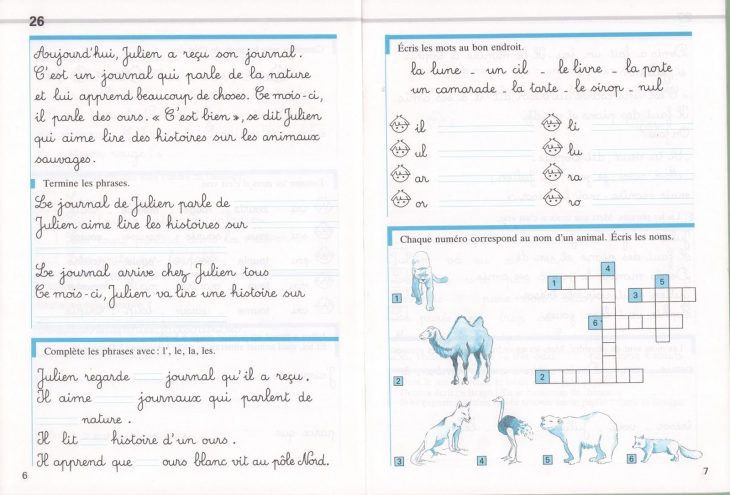 26
Aujourd'hui, Julien a reçu son journal.
C'est un journal qui parle de la nature
et lui apprend beaucoup de choses. Ce mois-ci,
il parle des ours. « C'est bien », se dit Julien
qui aime lire des histoires sur les animaux
sauvages.
Termine les phrases.
Le journal de Julien parle de
Julien aime lire les histoires sur
Le journal arrive chez Julien tous
Ce mois-ci, Julien va lire une histoire sur
Complète les phrases avec : l', le, la, les.
Julien regarde journal qu'il a reçu.
Il aime journaux qui parlent de
nature.
Il lit histoire d'un ours.
Il apprend que ours blanc vit au pôle Nord.
6
Écris les mots au bon endroit.
la lune - un cil - le livre - la porte
un camarade - la tarte - le sirop - nul
il li
ul lu
ar ra
or ro
Chaque numéro correspond au nom d'un animal. Écris les noms.
4
1 5
3
6
2
1
2
3 4 5 6
7